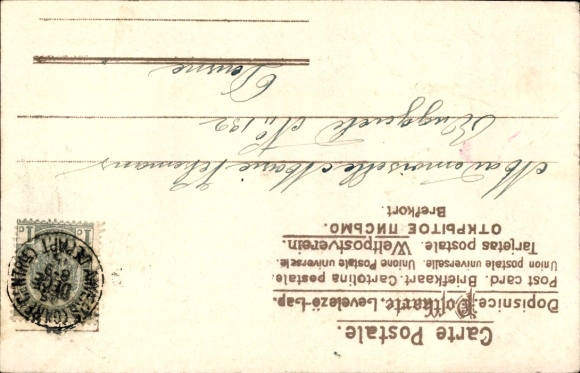 Carte Postale.
Dopisnice. Postkarte. Levelező-Lap.
Post card. Briefkaart. Cartolina postale.
Union postale universelle. Unione postale universale.
Tarjetas postale. Weltpostverein.
ОТКРЫТОЕ ПИСЬМО.
Brefkort.
Mademoiselle Marie
Nº 192
Deurne
1c 1c
ANVERS (GARE CENTRALE)
DÉPART